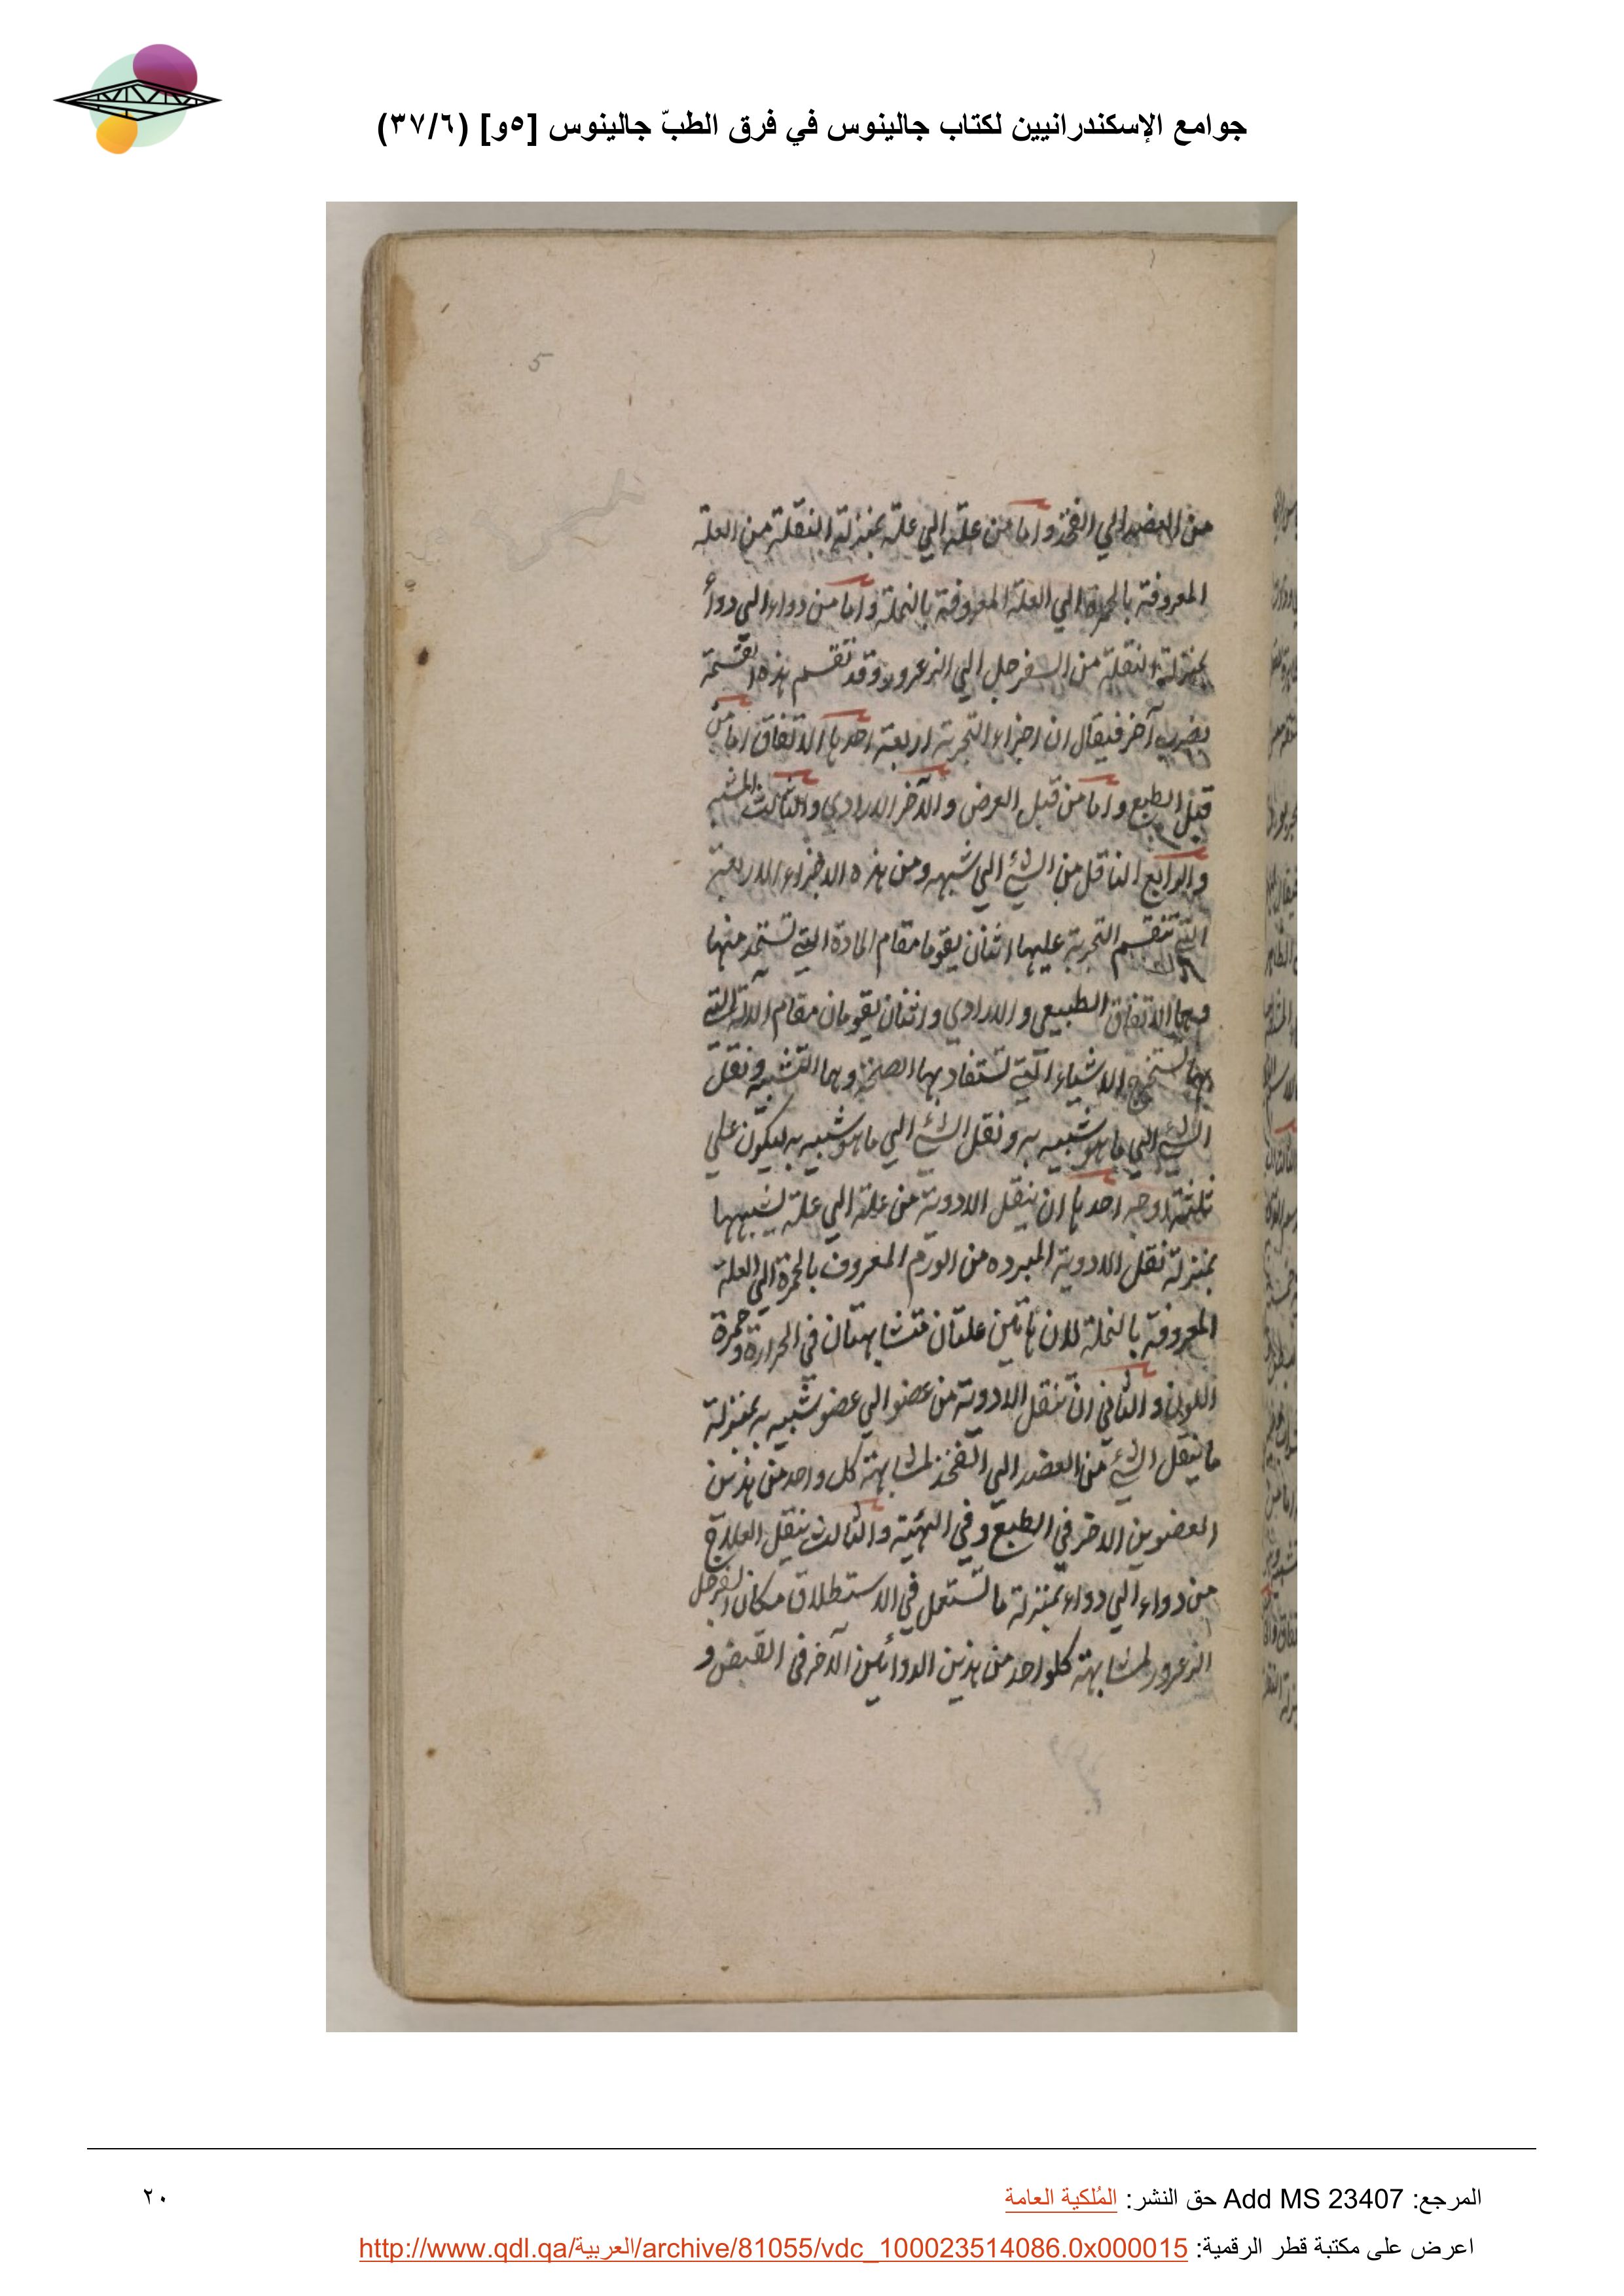 جوامع الإسكندرانيين لكتاب جالينوس في فرق الطبّ جالينوس [٥و] (٣٧/٦)
5
من العضد الي الفخذ واما من علة الي علة بمنزلة النقلة من العلة
المعروفة بالحمرة الي العلة المعروفة بالنملة واما من دواء الي دواء
بمنزلة النقلة من السفرجل الي الزعرور وقد تقسم هذه القسمة
بضرب آخر فيقال ان اجزاء التجربة اربعة احدها الاتفاق اما من
قبل الطبع واما من قبل العرض والآخر الارادي والثالث المشبه
والرابع الناقل من الشئ الي شبهه ومن هذه الاجزاء الاربعة
التي تنقسم التجربة عليها اثنان يقوما مقام المادة التي تستمد منها
وهما الاتفاق الطبيعي والارادي واثنان يقومان مقام الآلة التي
بها تستخرج الاشياء التي تستفاد بها الصحة وهما التشبيه ونقل
الشئ الي ما هو شبيه به ونقل الشئ الي ما هو شبيه به يكون علي
ثلثة اوجه احدها ان ينقل الادوية من علة الي علة تشبهها
بمنزلة نقل الادوية المبرده من الورم المعروف بالحمرة الي العلة
المعروفة بالنملة لان هاتين علتان متشابهتان في الحرارة و حمرة
اللون والثاني ان تنقل الادوية من عضو الي عضو شبيه به بمنزلة
ما ينقل الشئ من العضد الي الفخذ لمشابهة كل واحد من هذين
العضوين الاخر في الطبع وفي الهيئة والثالث ينقل العلاج
من دواء الي دواء بمنزلة ما تستعمل في الاستطلاق مكان السفرجل
الزعرور لمشابهة كلواحد من هذين الدوائين الآخر في القبض و
المرجع: Add MS 23407 حق النشر: المُلكية العامة
٢٠
اعرض على مكتبة قطر الرقمية: http://www.qdl.qa/العربية/archive/81055/vdc_100023514086.0x000015